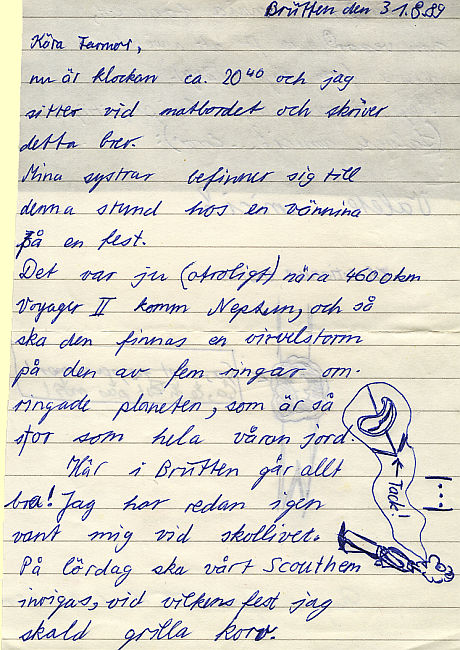 Brütten den 31.8.89
Kära Farmor,
nu är klockan ca. 20⁴⁰ och jag
sitter vid matbordet och skriver
detta brev.
Mina systrar befinner sig till
denna stund hos en väninna
på en fest.
Det var ju (otroligt) nära 4600km
Voyager II komm Neptun, och så
ska den finnas en virvelstorm
på den av fem ringar om-
ringade planeten, som är så
stor som hela våran jord.
Här i Brütten går allt
bra! Jag har redan igen
vant mig vid skollivet.
På lördag ska vårt Scouthem
invigas, vid vilkens fest jag
skald grilla korv.
Tack!